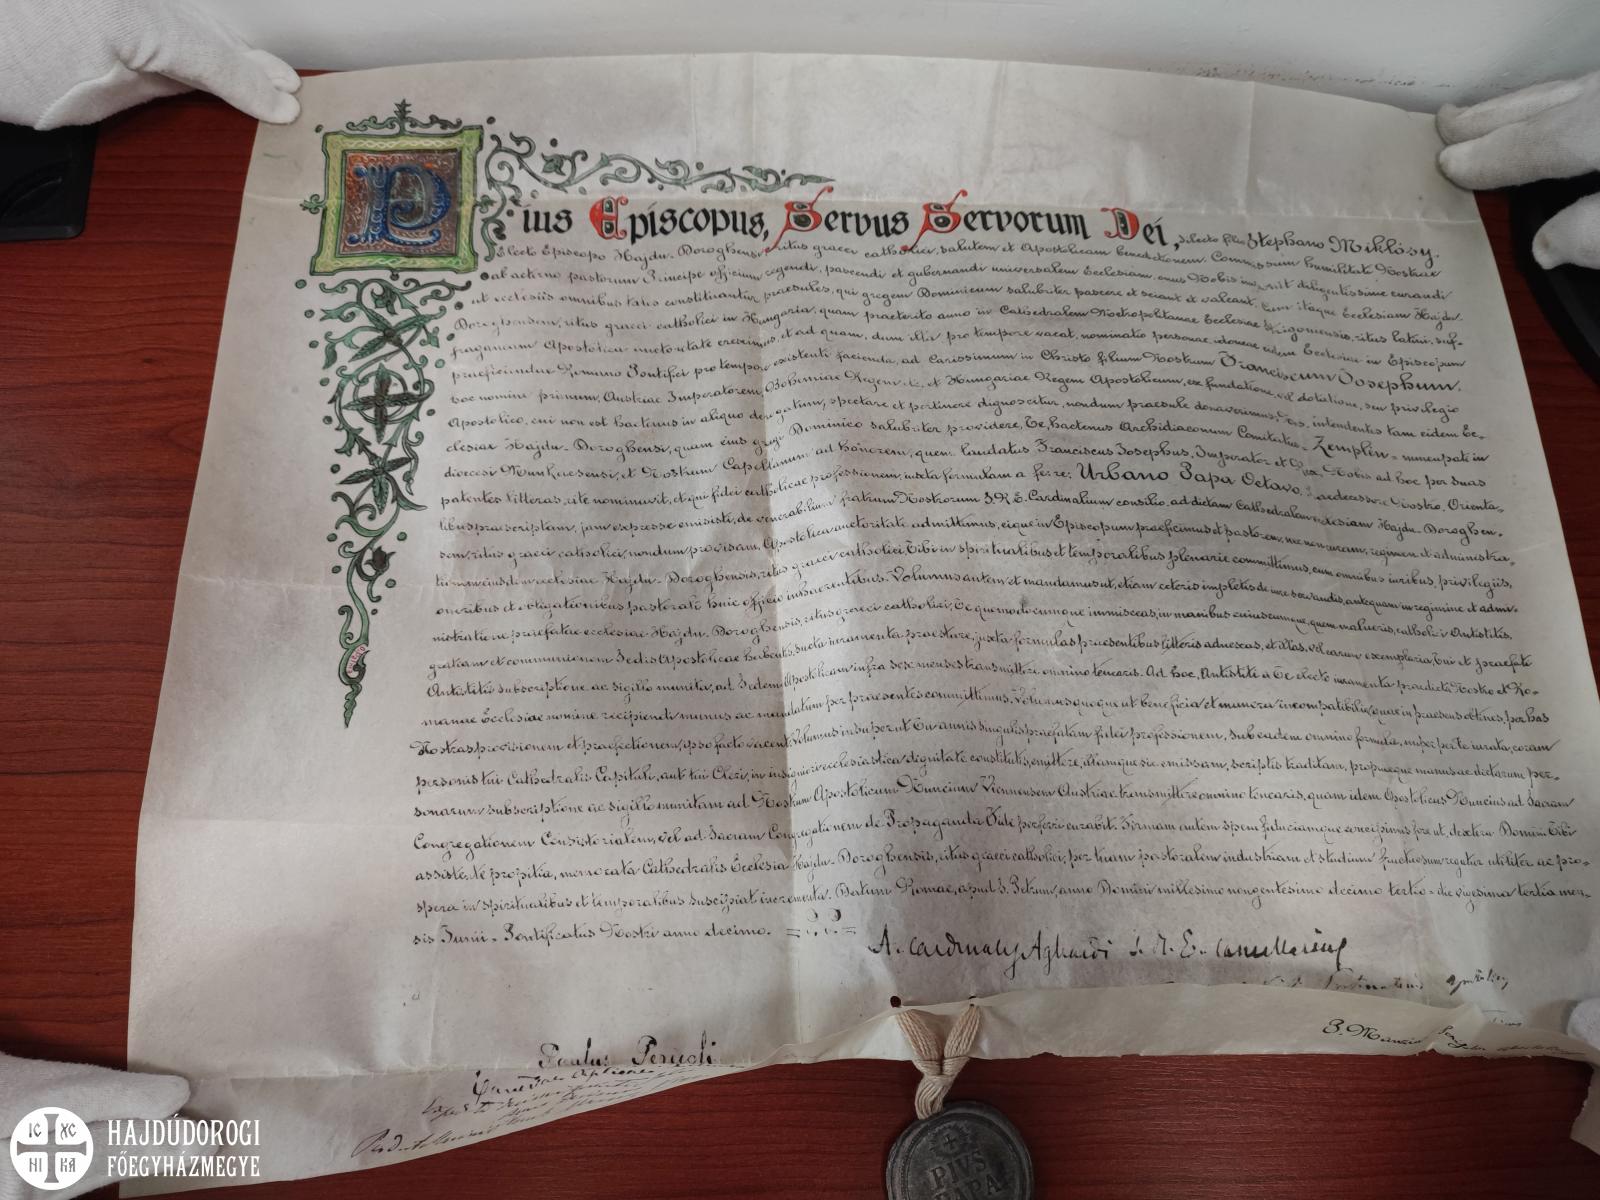 Pius Episcopus, Servus Servorum Dei, dilecto filio Stephano Miklósy,
Electo Episcopo Hajdu-Doroghensi, ritus graeci catholici, salutem et Apostolicam benedictionem. Commissum humilitati Nostrae
ab aeterno pastorum Principe officium regendi, pascendi et gubernandi universalem Ecclesiam, onus Nobis imponit diligentissime curandi
ut ecclesiis omnibus tales constituantur praesules, qui gregem Dominicum salubriter pascere et sciant et valeant. Cum itaque Ecclesiam Hajdu-
Doroghensem, ritus graeci catholici in Hungaria, quam praeterito anno in Cathedralem Metropolitanae Ecclesiae Strigoniensis, ritus latini, suf-
fraganeam Apostolica auctoritate ereximus, et ad quam, dum illa pro tempore vacat, nominatio personae idoneae eidem Ecclesiae in Episcopum
praeficiendae Romano Pontifici pro tempore existenti facienda, ad Carissimum in Christo filium Nostrum Franciscum Josephum,
hoc nomine primum, Austriae Imperatorem, Bohemiae Regem et Hungariae Regem Apostolicum, ex fundatione, vel dotatione, seu privilegio
Apostolico, cui non est hactenus in aliquo derogatum, spectare et pertinere dignoscitur, nondum praesule donaverimus: Nos, intendentes tam eidem Ec-
clesiae Hajdu-Doroghensi, quam eius gregi Dominico salubriter providere, Te, hactenus Archidiaconum Comitatus-Zemplin-nuncupati in
dioecesi Munkacsensi, et Nostrum Capellanum ad honorem, quem laudatus Franciscus Josephus, Imperator et Rex, Nobis ad hoc per suas
patentes litteras, rite nominavit, et qui fidei catholicae professionem, iuxta formulam a fe: re: Urbano Papa Octavo, Praedecessore Nostro, Orienta-
libus praescriptam, jam expresse emisisti, de venerabilium fratrum Nostrorum S. R. E. Cardinalium consilio, ad dictam Cathedralem ecclesiam Hajdu-Doroghen-
sem, ritus graeci catholici, nondum provisam, Apostolica auctoritate admittimus, eique in Episcopum praeficimus et pastorem, nec non curam, regimen et administra-
tionem eiusdem ecclesiae Hajdu-Doroghensis, ritus graeci catholici, Tibi in spiritualibus et temporalibus plenarie committimus, cum omnibus iuribus, privilegiis,
oneribus et obligationibus pastorali huic officio inhaerentibus. Volumus autem et mandamus ut, etiam ceteris impletis de iure servandis, antequam in regimine et admi-
nistratione praefatae ecclesiae Hajdu-Doroghensis, ritus graeci catholici, Te quomodocumque immisceas, in manibus cuiuscumque, quem malueris, catholici Antistitis,
gratiam et communionem Sedis Apostolicae habentis, sueta iuramenta praestare, juxta formulas praesentibus litteris adnexas, et illas, vel earum exemplaria Tui et praefati
Antistitis subscriptione ac sigillo munita, ad Sedem Apostolicam infra sex menses transmittere omnino tenearis. Ad hoc, Antistiti a Te electo iuramenta praedicta Nostro et Ro-
manae Ecclesiae nomine recipiendi munus ac mandatum per praesentes committimus. Volumus quoque ut beneficia et munera incompatibilia, quae in praesens obtines, per has
Nostras provisionem et praefectionem, ipso facto vacent. Volumus insuper ut Tu annis singulis praefatam fidei professionem, sub eadem omnino formula, nuper per te iurata, coram
personis tui Cathedralis Capituli, aut tui Cleri, in insigniori ecclesiastica dignitate constitutis, emittere, illamque sic emissam, scriptis traditam, propriaeque manus ac dictarum per-
sonarum subscriptione ac sigillo munitam ad Nostrum Apostolicum Nuncium Viennensem Austriae transmittere omnino tenearis, quam idem Apostolicus Nuncius ad Sacram
Congregationem Consistorialem, vel ad Sacram Congregationem de Propaganda Fide perferri curabit. Firmam autem spem fiduciamque concipimus fore ut, dextera Domini Tibi
assistente propitia, memorata Cathedralis Ecclesia Hajdu-Doroghensis, ritus graeci catholici, per tuam pastoralem industriam et studium fructuosum regatur utiliter ac pro-
spera in spiritualibus et temporalibus suscipiat incrementa. Datum Romae, apud S. Petrum, anno Domini millesimo nongentesimo decimo tertio-die vigesima tertia men-
sis Junii-Pontificatus Nostri anno decimo.
A. Cardinalis Agliardi S. R. E. Cancellarius
Paulus Pericoli
PIVS
PAPA
IC XC
NI KA
HAJDÚDOROGI
FŐEGYHÁZMEGYE